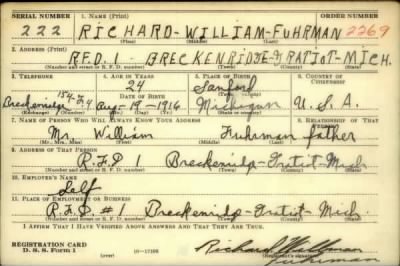 SERIAL NUMBER 1. NAME (Print) ORDER NUMBER
222 RICHARD-WILLIAM-FUHRMAN 2269
(First) (Middle) (Last)
2. ADDRESS (Print)
R.F.D. 1 BRECKENRIDGE-GRATIOT-MICH.
(Number and street or R. F. D. number) (Town) (County) (State)
3. TELEPHONE 4. AGE IN YEARS 5. PLACE OF BIRTH 6. COUNTRY OF CITIZENSHIP
24 Sanford
DATE OF BIRTH (Town or county)
Breckenridge 154-F4 Aug-19-1916 Michigan U.S.A.
(Exchange) (Number) (Mo.) (Day) (Yr.) (State or country)
7. NAME OF PERSON WHO WILL ALWAYS KNOW YOUR ADDRESS 8. RELATIONSHIP OF THAT PERSON
Mr. William Fuhrman father
(Mr., Mrs., Miss) (First) (Middle) (Last)
9. ADDRESS OF THAT PERSON
R.F.D 1 Breckenridg-Gratiot-Mich
(Number and street or R. F. D. number) (Town) (County) (State)
10. EMPLOYER'S NAME
Self
11. PLACE OF EMPLOYMENT OR BUSINESS
R.F.D #1 Breckenridg-Gratiot-Mich.
(Number and street or R. F. D. number) (Town) (County) (State)
I AFFIRM THAT I HAVE VERIFIED ABOVE ANSWERS AND THAT THEY ARE TRUE.
REGISTRATION CARD
D. S. S. Form 1 (over) Richard William
Fuhrman
(Registrant's signature)